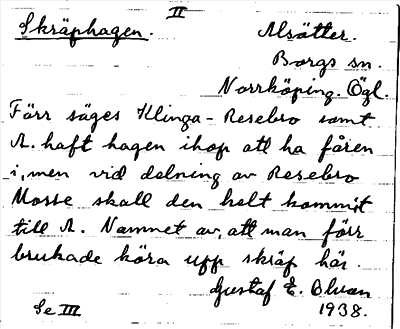 II
Skräphagen. Alsätter.
Borgs sn.
Norrköping. Ögl.
Förr säges Klinga-Resebro samt
A. haft hagen ihop att ha fåren
i, men vid delning av Resebro
Mosse skall den helt kommit
till A. Namnet av, att man förr
brukade köra upp skräp här.
Gustaf E.
Se III 1938.